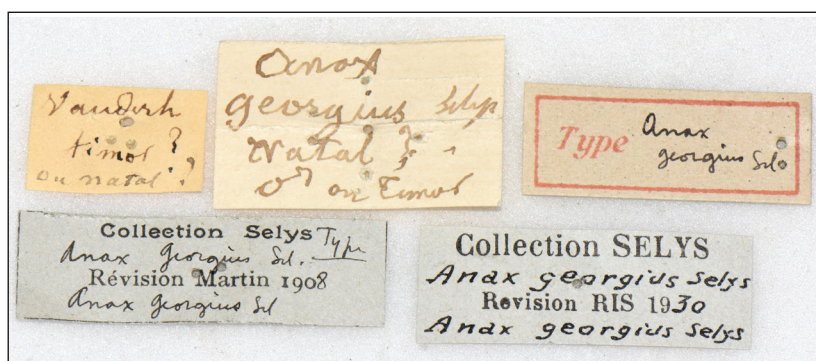 timor?
ou natal?
Anax
georgius Selys
Natal?
♂ ou Timor
Type Anax
georgius Sel.
Collection Selys Type
Anax Georgius Sel.
Révision Martin 1908
Anax Georgius Sel
Collection SELYS
Anax georgius Selys
Revision RIS 1930
Anax georgius Selys